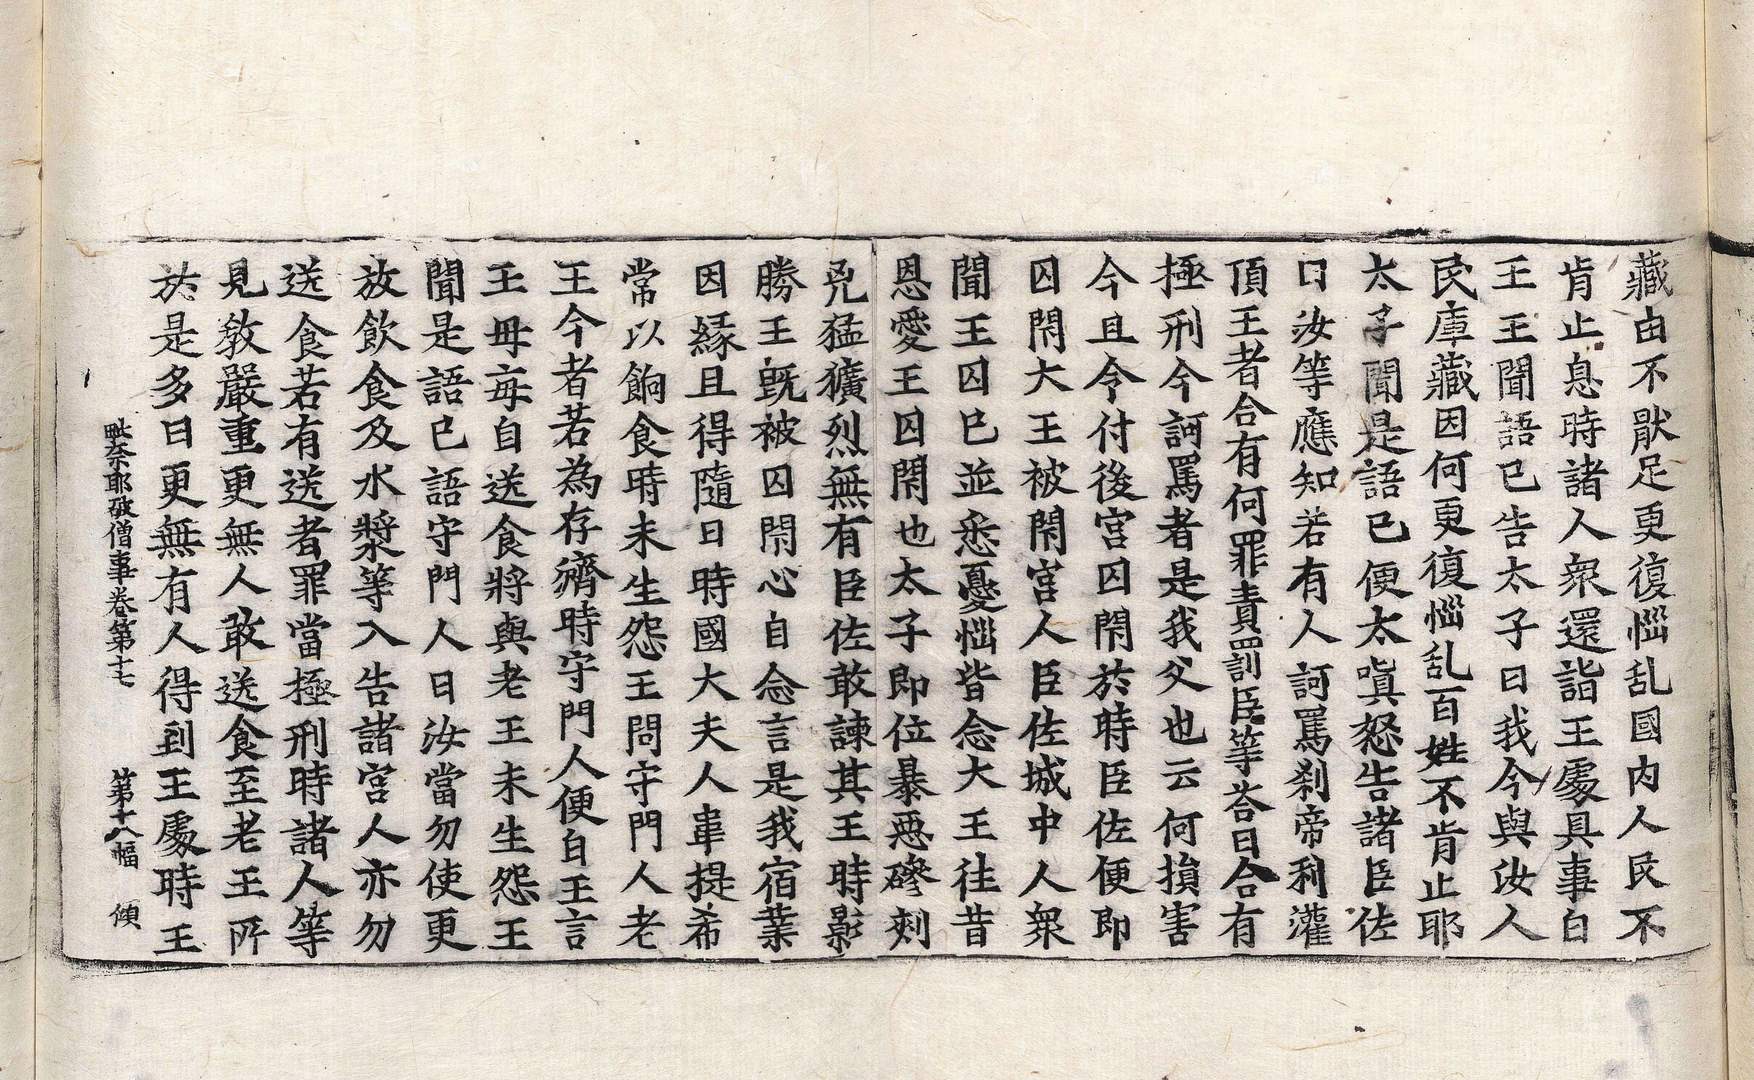 藏由不猒足更復惱乱國内人民不
肯止息時諸人衆還詣王處具事白
王王聞語已告太子曰我今與汝人
民庫藏因何更復惱乱百姓不肯止耶
太子聞是語已便太嗔怒告諸臣佐
曰汝等應知若有人訶罵刹帝利灌
頂王者合有何罪責罰臣等荅曰合有
極刑今訶罵者是我父也云何損害
今且令付後宮囚閇於時臣佐便即
囚閇大王被閇宮人臣佐城中人衆
聞王囚已並悉憂惱皆念大王往昔
恩愛王囚閇也太子即位暴惡磣刾
兇猛獷烈無有臣佐敢諫其王時影
勝王既被囚閇心自念言是我宿業
因緣且得隨日時國大夫人韋提希
常以餉食時未生怨王問守門人老
王今者若為存濟時守門人便白王言
王毋每自送食將與老王未生怨王
聞是語已語守門人曰汝當勿使更
放飲食及水漿等入告諸宮人亦勿
送食若有送者罪當極刑時諸人等
見教嚴重更無人敢送食至老王所
於是多日更無有人得到王處時王
毗奈耶破僧事卷第十七　第十八幅　傾